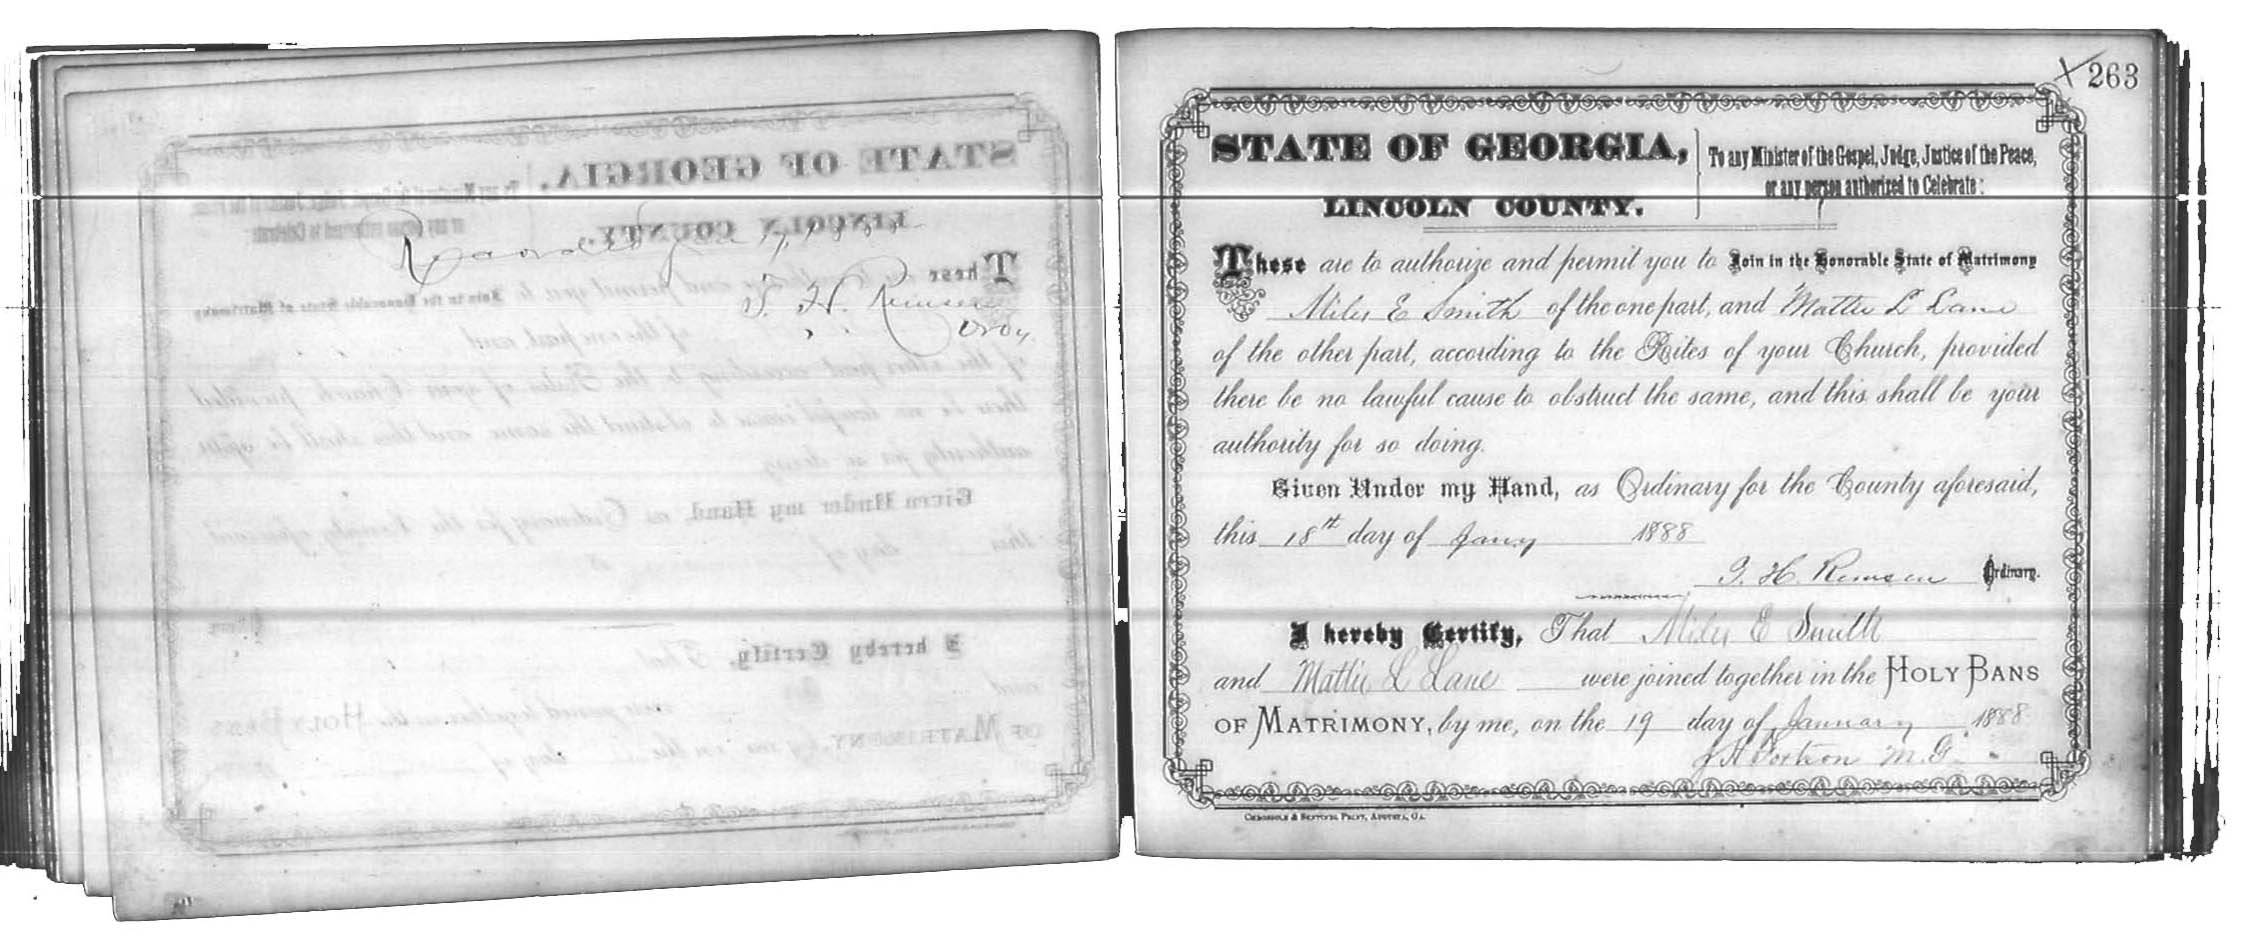 Recorded Jan 1888
T. H. Remsen
Ordy
263
STATE OF GEORGIA,
LINCOLN COUNTY.
To any Minister of the Gospel, Judge, Justice of the Peace,
or any person authorized to Celebrate:
These are to authorize and permit you to Join in the Honorable State of Matrimony
Miles E Smith of the one part, and Mattie L Lane
of the other part, according to the Rites of your Church, provided
there be no lawful cause to obstruct the same, and this shall be your
authority for so doing.
Given Under my Hand, as Ordinary for the County aforesaid,
this 18th day of Jany 1888
T. H. Remsen Ordinary.
I hereby Certify, That Miles E Smith
and Mattie L Lane were joined together in the HOLY BANS
OF MATRIMONY, by me, on the 19 day of January 1888
M. G.
CHRONICLE & SENTINEL PRINT, AUGUSTA, GA.